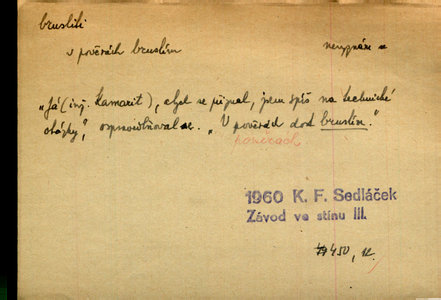 bruslili
v pověrách bruslím nevyznám se
„Já (inž. Kamarit), abych se přiznal, jsem spíš na technické
otázky“, ospravedlňoval se. „V pověrách dost bruslím.“
pověrách
1960 K. F. Sedláček
Závod ve stínu III.
450, 12.